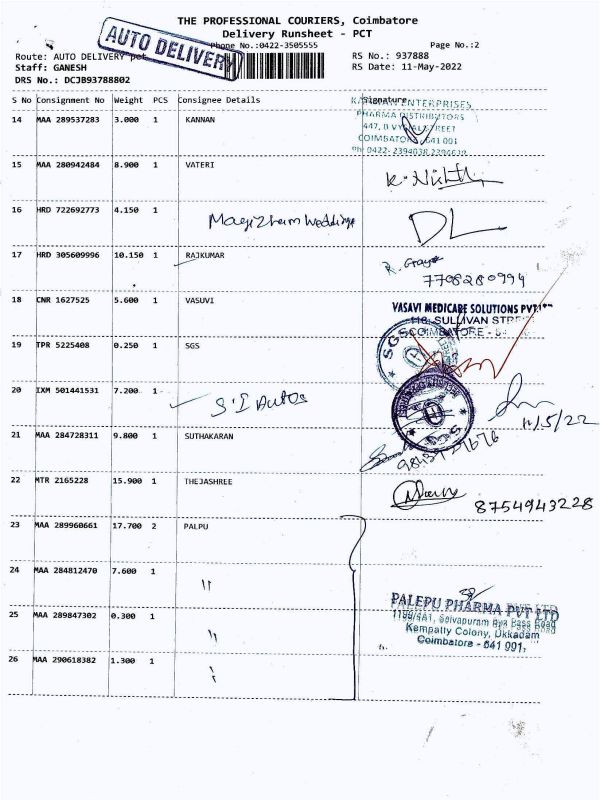 THE PROFESSIONAL COURIERS, Coimbatore
Delivery Runsheet - PCT
AUTO DELIVERY
Phone No.:0422-3505555
Page No.:2
Route: AUTO DELIVERY pct
RS No.: 937888
Staff: GANESH
RS Date: 11-May-2022
DRS No.: DCJB93788802
S No Consignment No Weight PCS Consignee Details Signature
ENTERPRISES
PHARMA DISTRIBUTORS
14 MAA 289537283 3.000 1 KANNAN
447, STREET
COIMBATORE 641 001
Ph: 0422-2394038
15 MAA 280942484 8.900 1 VATERI
16 HRD 722692773 4.150 1 DL
17 HRD 305609996 10.150 1 RAJKUMAR
7708280994
18 CNR 1627525 5.600 1 VASUVI
VASAVI MEDICARE SOLUTIONS PVT
SULLIVAN
COIMBATORE
19 TPR 5225408 0.250 1 SGS
SGS
20 IXM 501441531 7.200 1 S.I Autos
11/5/22
21 MAA 284728311 9.800 1 SUTHAKARAN
22 MTR 2165228 15.900 1 THEJASHREE
8754943228
23 MAA 289960661 17.700 2 PALPU
24 MAA 284812470 7.600 1 "
PALEPU PHARMA PVT LTD
25 MAA 289847302 0.300 1 "
Selvapuram Bye Pass Road
Kempatty Colony, Ukkadam
Coimbatore - 641 001.
26 MAA 290618382 1.300 1 "